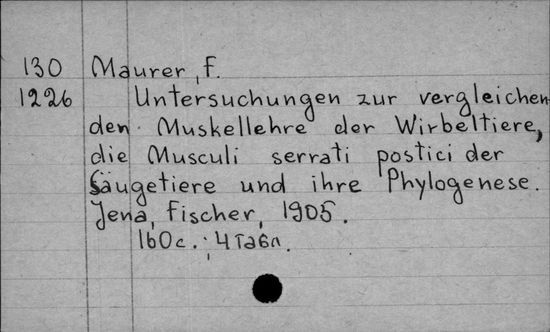 130 Maurer, F.
1226 Untersuchungen zur vergleichen
den Muskellehre der Wirbeltiere,
die Musculi serrati postici der
Säugetiere und ihre Phylogenese.
Jena, Fischer, 1905.
160 с.; 4 табл.